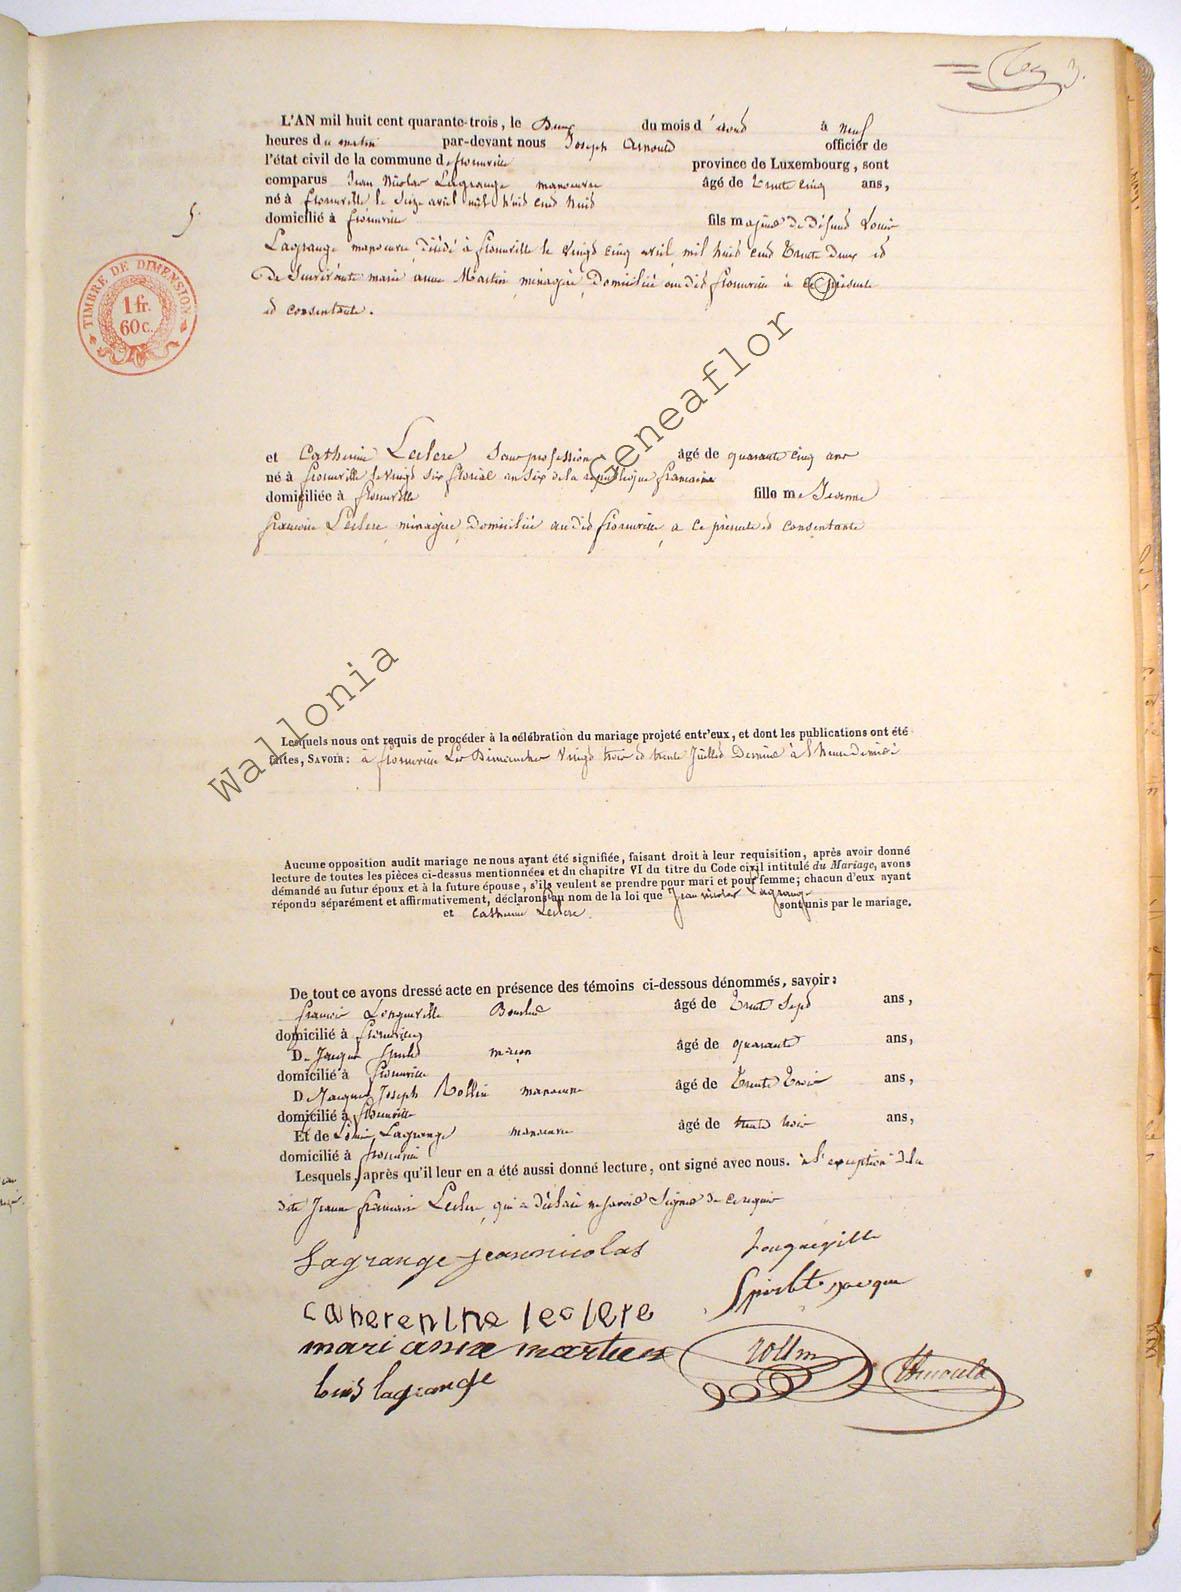 3.
L'AN mil huit cent quarante-trois, le Deux du mois d'août à neuf
heures du matin par-devant nous Joseph Arnould officier de
l'état civil de la commune de florenville province de Luxembourg, sont
comparus Jean Nicolas Lagrange manoeuvre âgé de trente cinq ans,
né à florenville le seize avril mil huit cent huit
domicilié à florenville fils majeur de défunt Louis
Lagrange manoeuvre décédé à florenville le vingt cinq avril mil huit cent trente deux et
de survivante marie anne Martin ménagère, domiciliée audit florenville à ce présente
et consentante.
5.
TIMBRE DE DIMENSION
1 fr.
60 c.
et Catherine Leclere sans profession âgé de quarante cinq ans
né à florenville le vingt six floréal an six de la république française
domiciliée à florenville fille me Jeanne
françoise Leclere, ménagère, domiciliée audit florenville, a ce présente et consentante
Wallonia Geneaflor ©
Lesquels nous ont requis de procéder à la célébration du mariage projeté entr'eux, et dont les publications ont été
faites, SAVOIR: à florenville les Dimanches vingt trois et trente Juillet Dernier à
Aucune opposition audit mariage ne nous ayant été signifiée, faisant droit à leur requisition, après avoir donné
lecture de toutes les pièces ci-dessus mentionnées et du chapitre VI du titre du Code civil intitulé du Mariage, avons
démandé au futur époux et à la future épouse, s'ils veulent se prendre pour mari et pour femme; chacun d'eux ayant
répondu séparément et affirmativement, déclarons au nom de la loi que Jean nicolas Lagrange
et Catherine Leclere sont unis par le mariage.
De tout ce avons dressé acte en présence des témoins ci-dessous dénommés, savoir:
françois Longueville âgé de trente sept ans,
domicilié à florenville
De Jacques maçon âgé de quarante ans,
domicilié à florenville
De Jacques Joseph Rollin manoeuvre âgé de trente trois ans,
domicilié à florenville
Et de Louis Lagrange manoeuvre âgé de trente trois ans,
domicilié à florenville
Lesquels, après qu'il leur en a été aussi donné lecture, ont signé avec nous. à l'exception de la
dite Jeanne françoise Leclere, qui a déclaré ne savoir signer de ce requis
Lagrange jeannicolas
Spirlet jacque
Catherenine leclere
mari anne martin
rollin
Arnould
louis lagrange